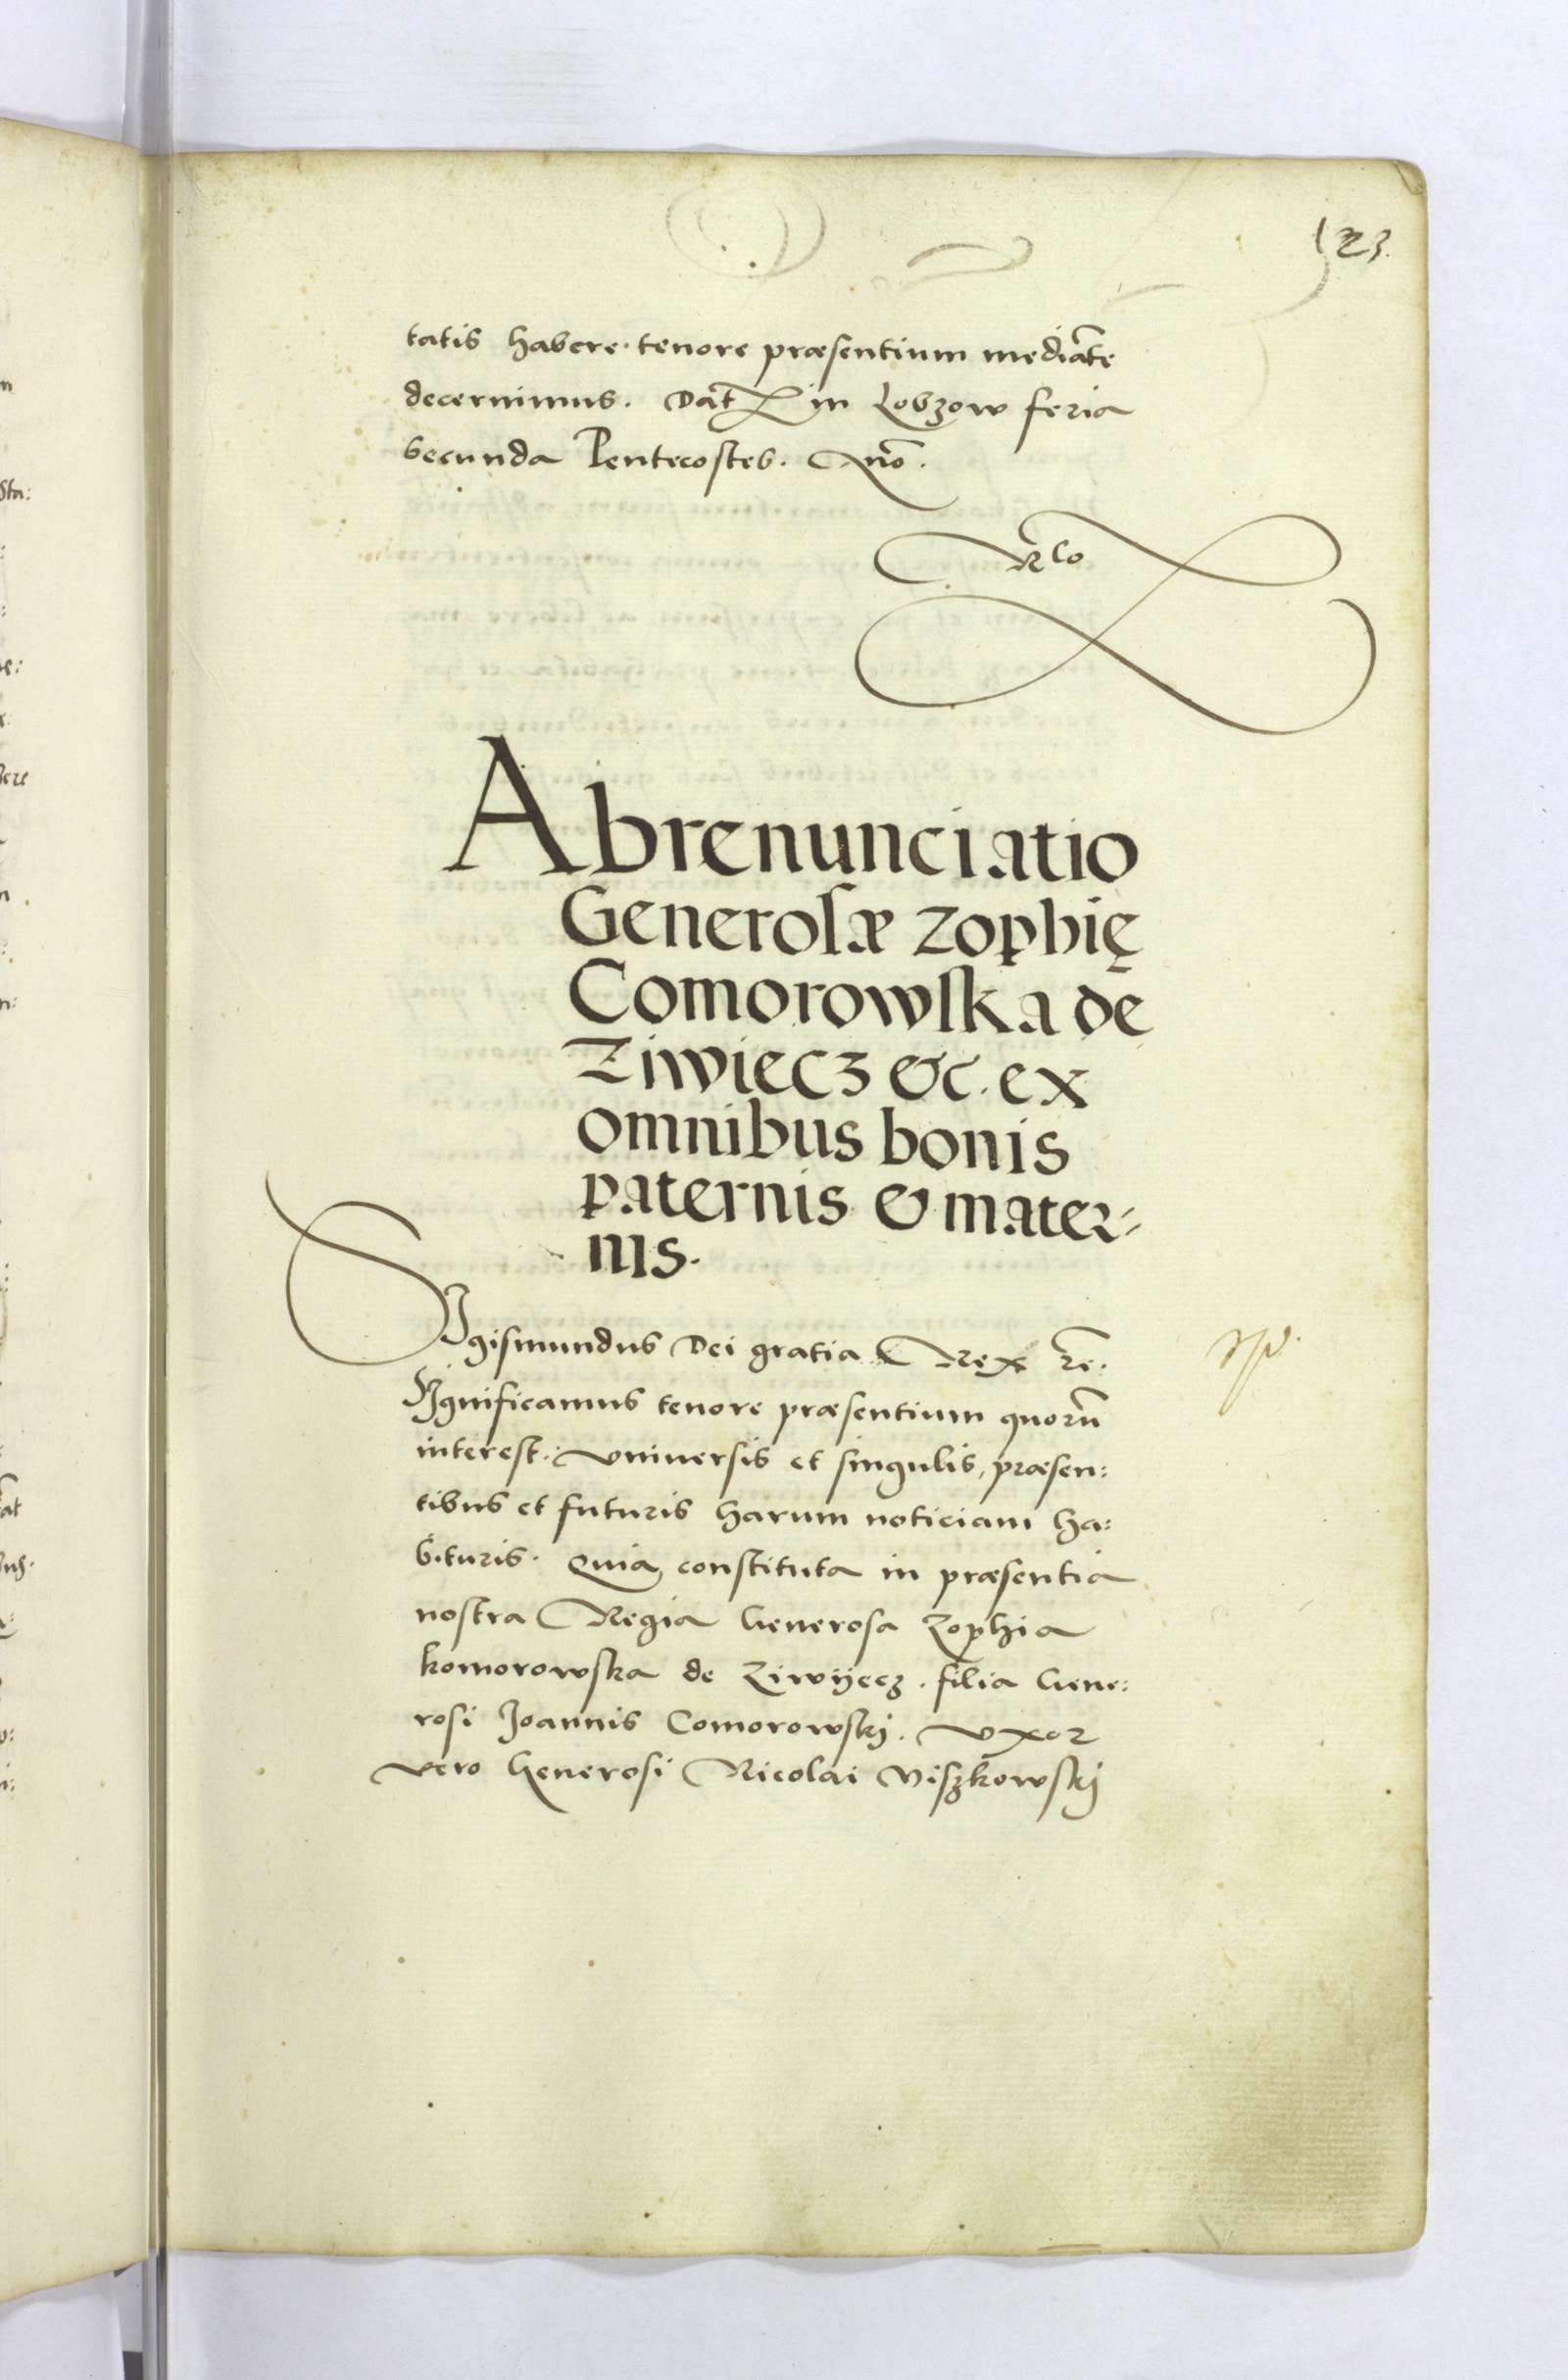 123.
tatis habere tenore præsentium mediãte
decernimus. Dat in Lobzow feria
secunda Pentecostes. Año.
Rlo
Abrenunciatio
Generosæ Zophię
Comorowska de
Ziwiecz &c. ex
omnibus bonis
paternis & mater=
nis.
SIgismundus Dei gratia Rex rē.
Significamus tenore præsentium quorū
interest. vniuersis et singulis, præsen:
tibus et futuris harum noticiam ha:
bituris. Quia constituta in præsentia
nostra Regia Generosa Zophia
komorowska de Ziwijecz. filia Gene:
rosi Joannis Comorowskj. vxor
vero Generosi Nicolai Viszkowskj